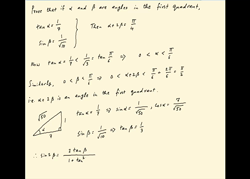 Prove that if α and β are angles in the first quadrant,
tan α = 1/7
sin β = 1/√10 } Then α+2β = π/4
Now tan α = 1/7 < 1/√3 = tan π/6 ⇒ 0 < α < π/6
Similarly, 0 < β < π/6 ⇒ 0 < α+2β < π/6 + 2π/6 = π/2
i.e. α+2β is an angle in the first quadrant.
√50 1 7
tan α = 1/7 ⇒ sin α = 1/√50 , cos α = 7/√50
sin β = 1/√10 ⇒ tan β = 1/3
∴ sin 2β = 2 tan β / 1+tan²